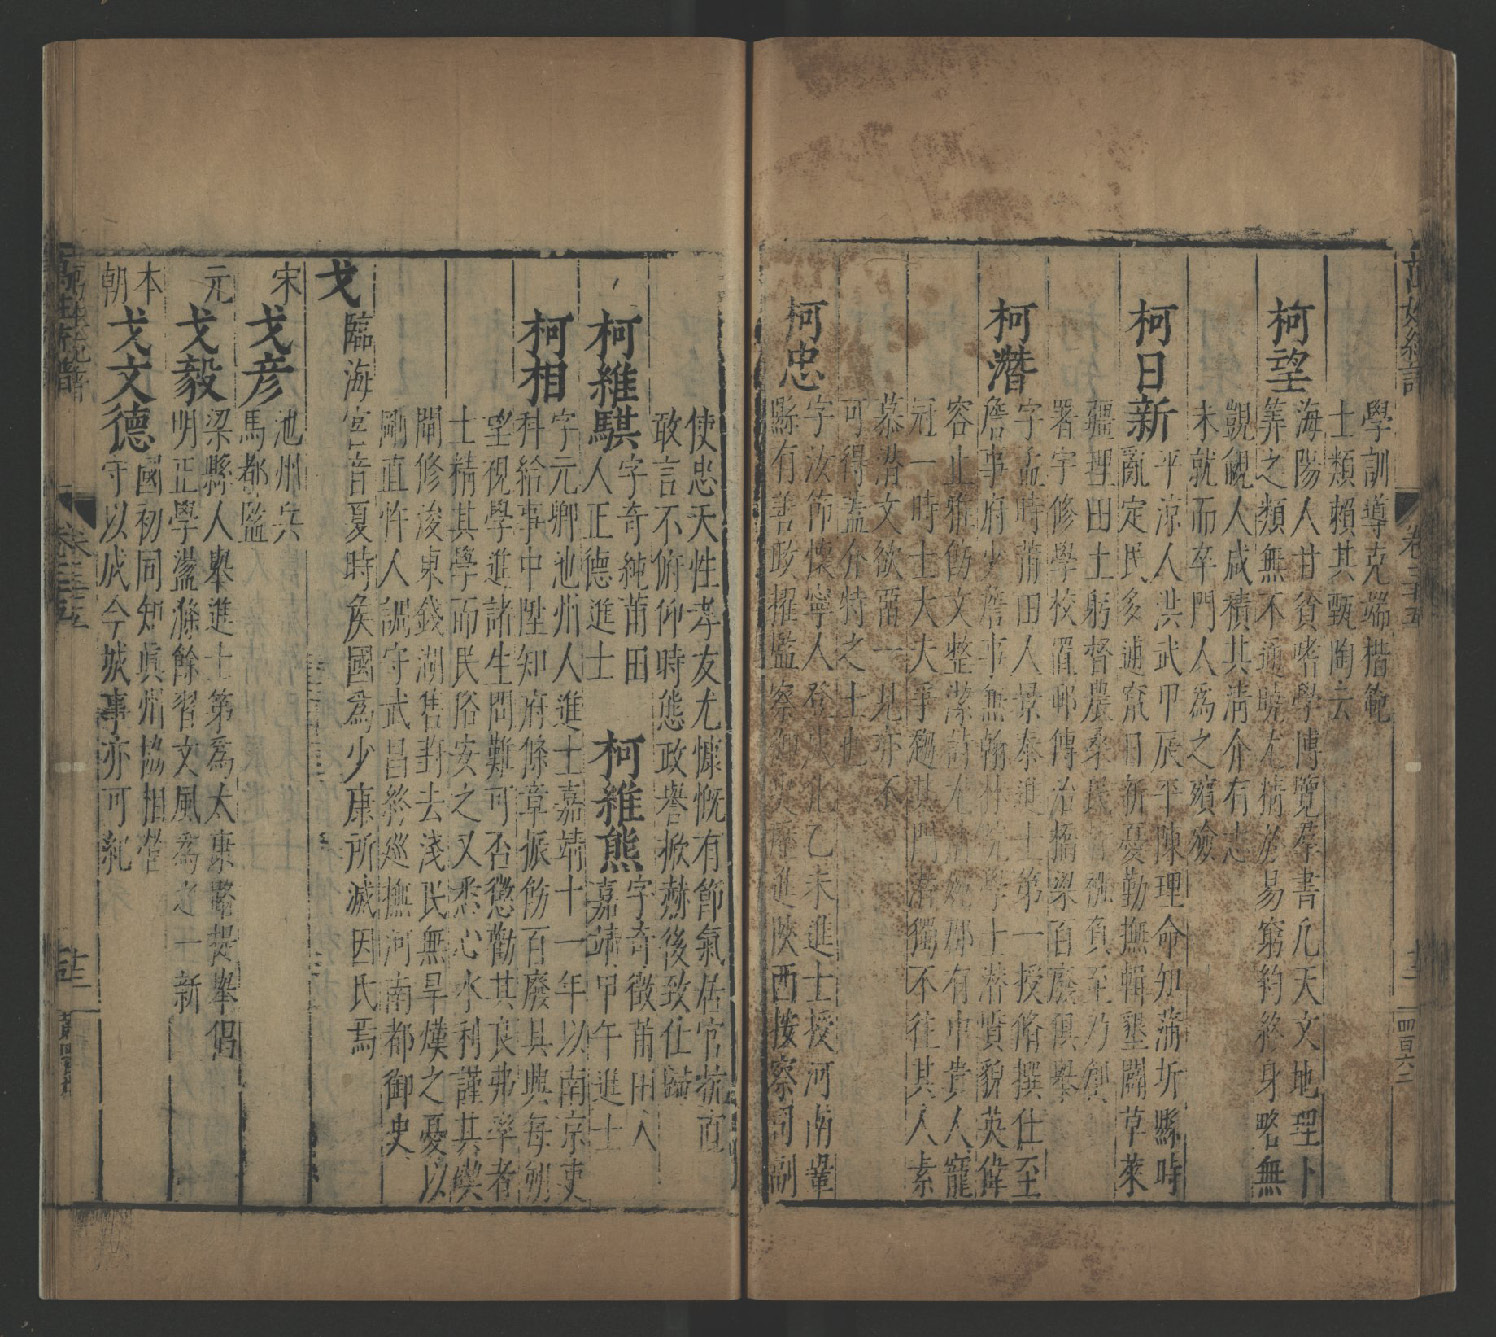 萬姓統譜
卷三十五
十二
四百六二
學訓導克端楷範
士類賴其甄陶云
柯望
海陽人甘貧嗜學博覽羣書凡天文地理卜
筭之類無不通曉尤精於易窮約終身略無
覬覦人咸稱其清介有志
未就而卒門人為之殯殮
柯日新
平涼人洪武甲辰平陳理命知蒲圻縣時
亂定民多逋竄日新憂勤撫輯墾闢草萊
疆理田土躬督農桑民襁負至乃創
署宇修學校置郵傳治橋梁百廢俱舉
柯潛
字孟時莆田人景泰進士第一授脩撰仕至
詹事府少詹事兼翰林院學士潛貌英偉
容止雅飭文整潔詩尤清婉郡有中貴人寵
冠一時士大夫爭趨其門潛獨不往其人素
慕潛文欲面一見亦不
可得蓋介特之士也
柯忠
字汝節懷寧人登成化乙未進士授河南鞏
縣有善政擢監察御史陞進陝西按察司副
使忠天性孝友尤慷慨有節氣居官抗直
敢言不俯仰時態政譽掀赫後致仕歸
柯維騏
字奇純莆田
人正德進士
柯維熊
字奇徵莆田人
嘉靖甲午進士
柯相
字元卿池州人進士嘉靖十一年以南京吏
科給事中陞知府條章振飭百廢具興每朔
望視學進諸生問難可否懲勸其良弗率者
士精其學而民俗安之又悉心水利謹其鍥
閘修浚東錢湖舊封去淺民無旱熯之憂以
剛直忤人調守武昌終巡撫河南都御史
戈
臨海宮音夏時侯國為少康所滅因氏焉
宋
戈彥
池州兵
馬都監
元
戈毅
梁縣人舉進士第為太康路提舉倡
明正學盪滌餘習文風為之一新
本朝
戈文德
國初同知真州協相營
守以成今城事亦可紀
萬姓統譜
卷三十五
十二